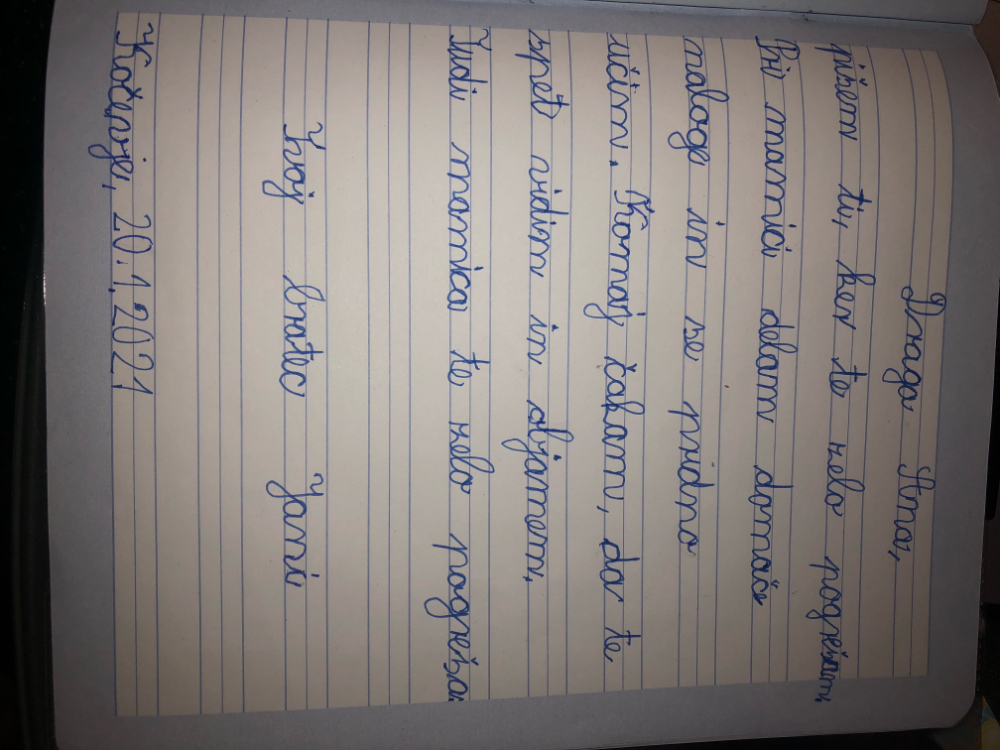 Draga Ana,
pišem ti, ker te zelo pogrešam.
Pri mamici delam domače
naloge in se pridno
učim. Komaj čakam, da te
spet vidim in objamem.
Tudi mamica te zelo pogreša.
Tvoj bratec Jani
Kočevje, 20.1.2021